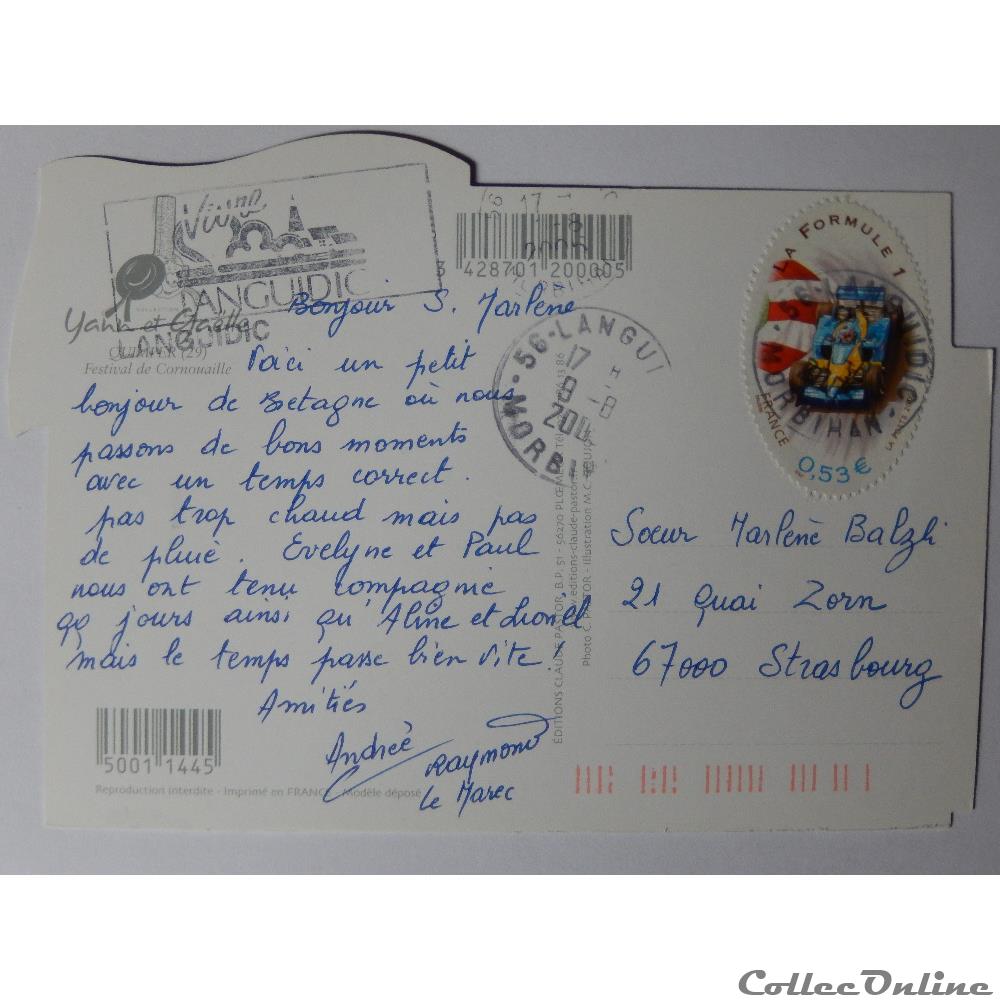 Vivre
LANGUIDIC
LANGUIDIC
3 428701 200605
Yann et Gaëlle
QUIMPER (29)
Festival de Cornouaille
Bonjour S. Marlène
Voici un petit
bonjour de Bretagne où nous
passons de bons moments
avec un temps correct.
pas trop chaud mais pas
de pluie. Evelyne et Paul
nous ont tenu compagnie
qq jours ainsi qu'Aline et Lionel
mais le temps passe bien vite!
Amitiés
Andrée
Raymond
Le Marec
5001 1445
Reproduction interdite - Imprimé en FRANCE - Modèle déposé
56-LANGUI
17 H
8 -8
MORBI
ÉDITIONS CLAUDE PASTOR, B.P. 51 - 56270 PLŒMEUR
Photo C. PASTOR - Illustration M.C.
LA FORMULE 1
FRANCE
LA POSTE
0,53 €
MORBIHAN
Sœur Marlène Balzli
21 Quai Zorn
67000 Strasbourg
CollecOnline